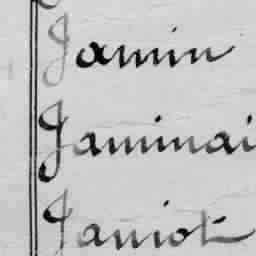 Jamin
Jaminai
Jamot